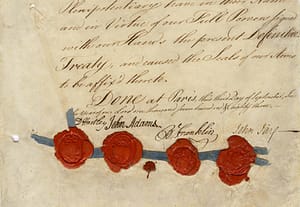 Plenipotentiary have in their Name
and in Virtue of our Full Powers signed
with our Hands the present Definitive
Treaty, and caused the Seals of our Arms
to be affixed thereto.
Done at Paris this third Day of September, In
D Hartley John Adams. B Franklin John Jay